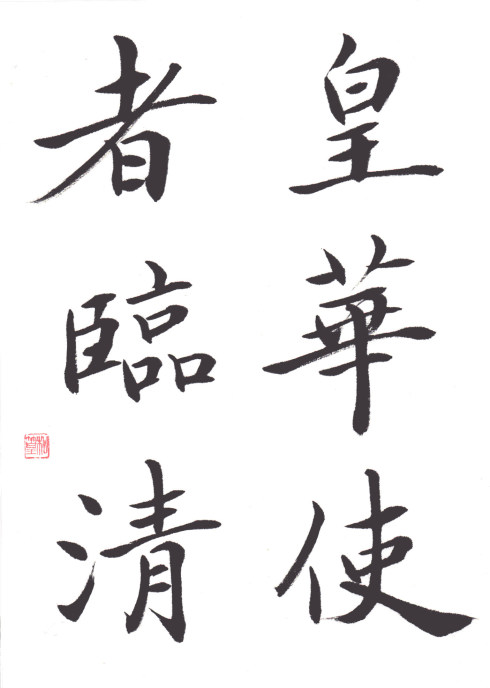 皇華使
者臨清